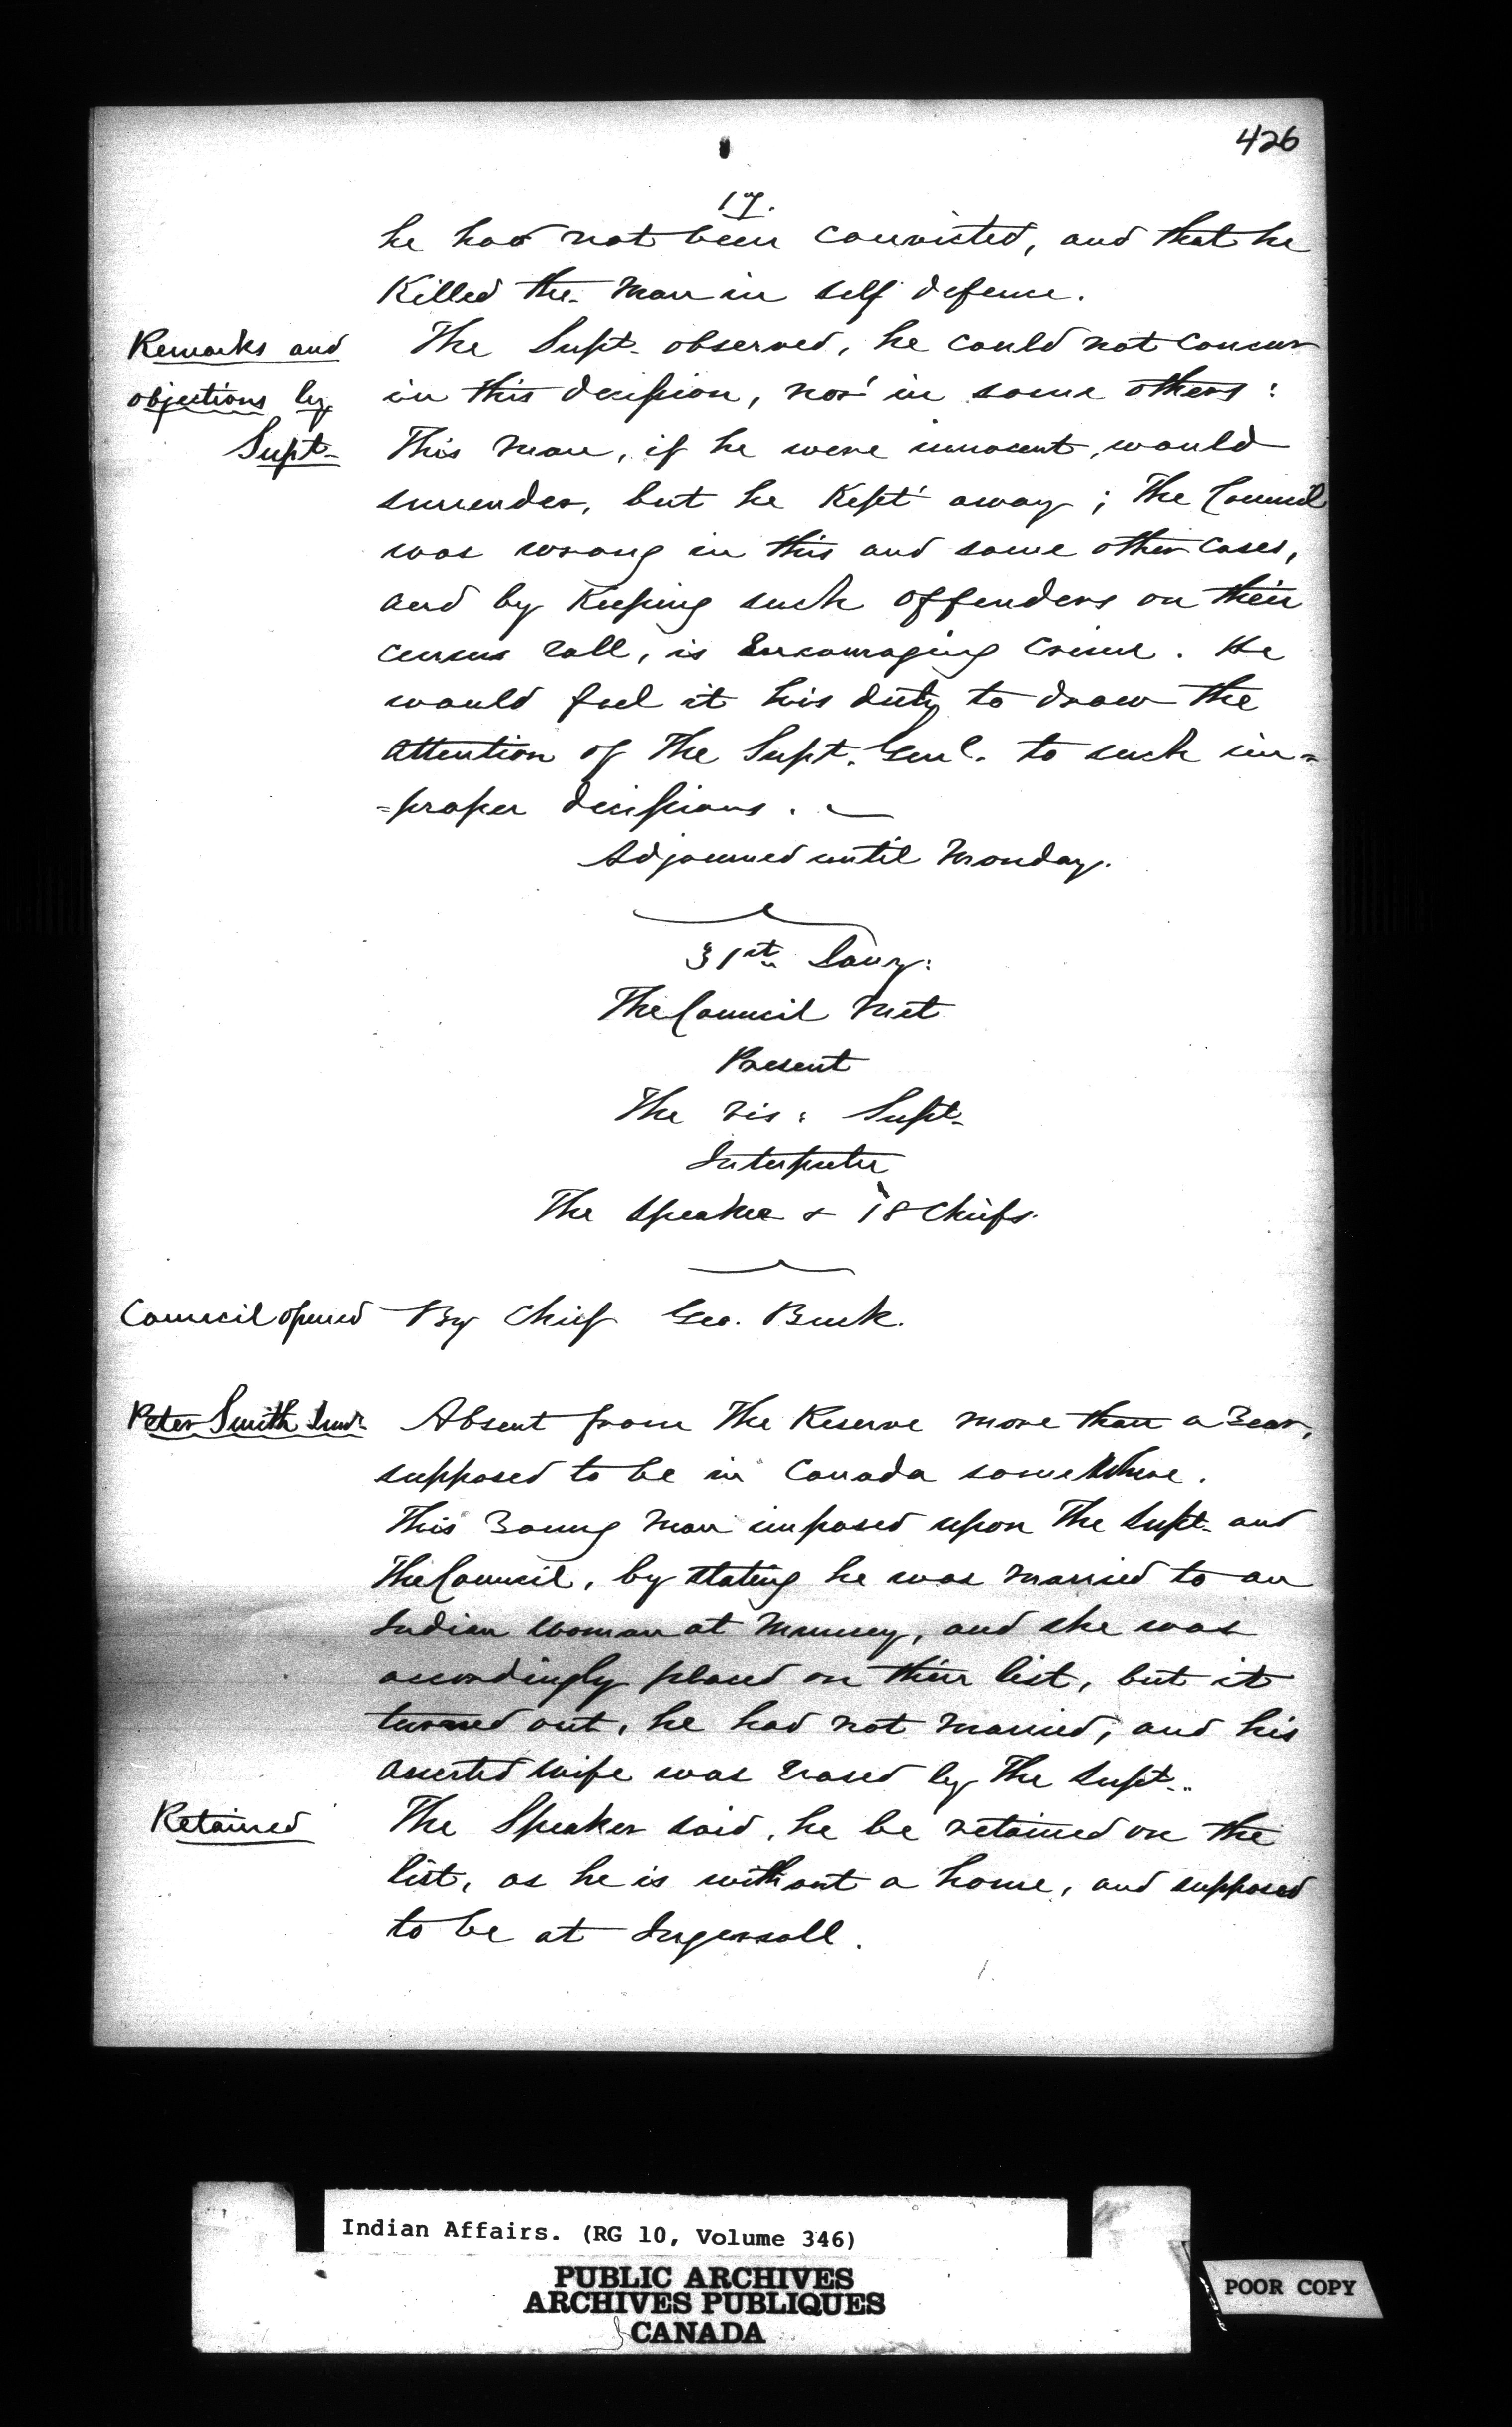 426
17.
he had not been convicted, and that he
Killed the man in self defence.
Remarks and
objections by
Supt.
The Supt. observed, he could not concur
in this decision, nor in some others:
This man, if he were innocent, would
surrender, but he Kept away; The Council
was wrong in this and some other cases,
and by Keeping such offenders on their
census roll, is Encouraging crime. He
would feel it his duty to draw the
attention of The Supt. Genl. to such im=
=proper decisions.
Adjourned until Monday.
31st Jany:
The Council met
Present
The Vis: Supt.
Interpreter
The Speaker & 18 Chiefs.
Council opened By Chief Geo. Buck.
Peter Smith
Absent from The Reserve more than a Year,
supposed to be in Canada somewhere.
This Young man imposed upon The Supt. and
The Council, by stating he was married to an
Indian woman at Muncey, and she was
accordingly placed on their list, but it
turned out, he had not married, and his
asserted wife was Erased by The Supt..
Retained
The Speaker said, he be retained on the
list, as he is without a home, and supposed
to be at Ingersoll.
Indian Affairs. (RG 10, Volume 346)
PUBLIC ARCHIVES
ARCHIVES PUBLIQUES
CANADA
POOR COPY